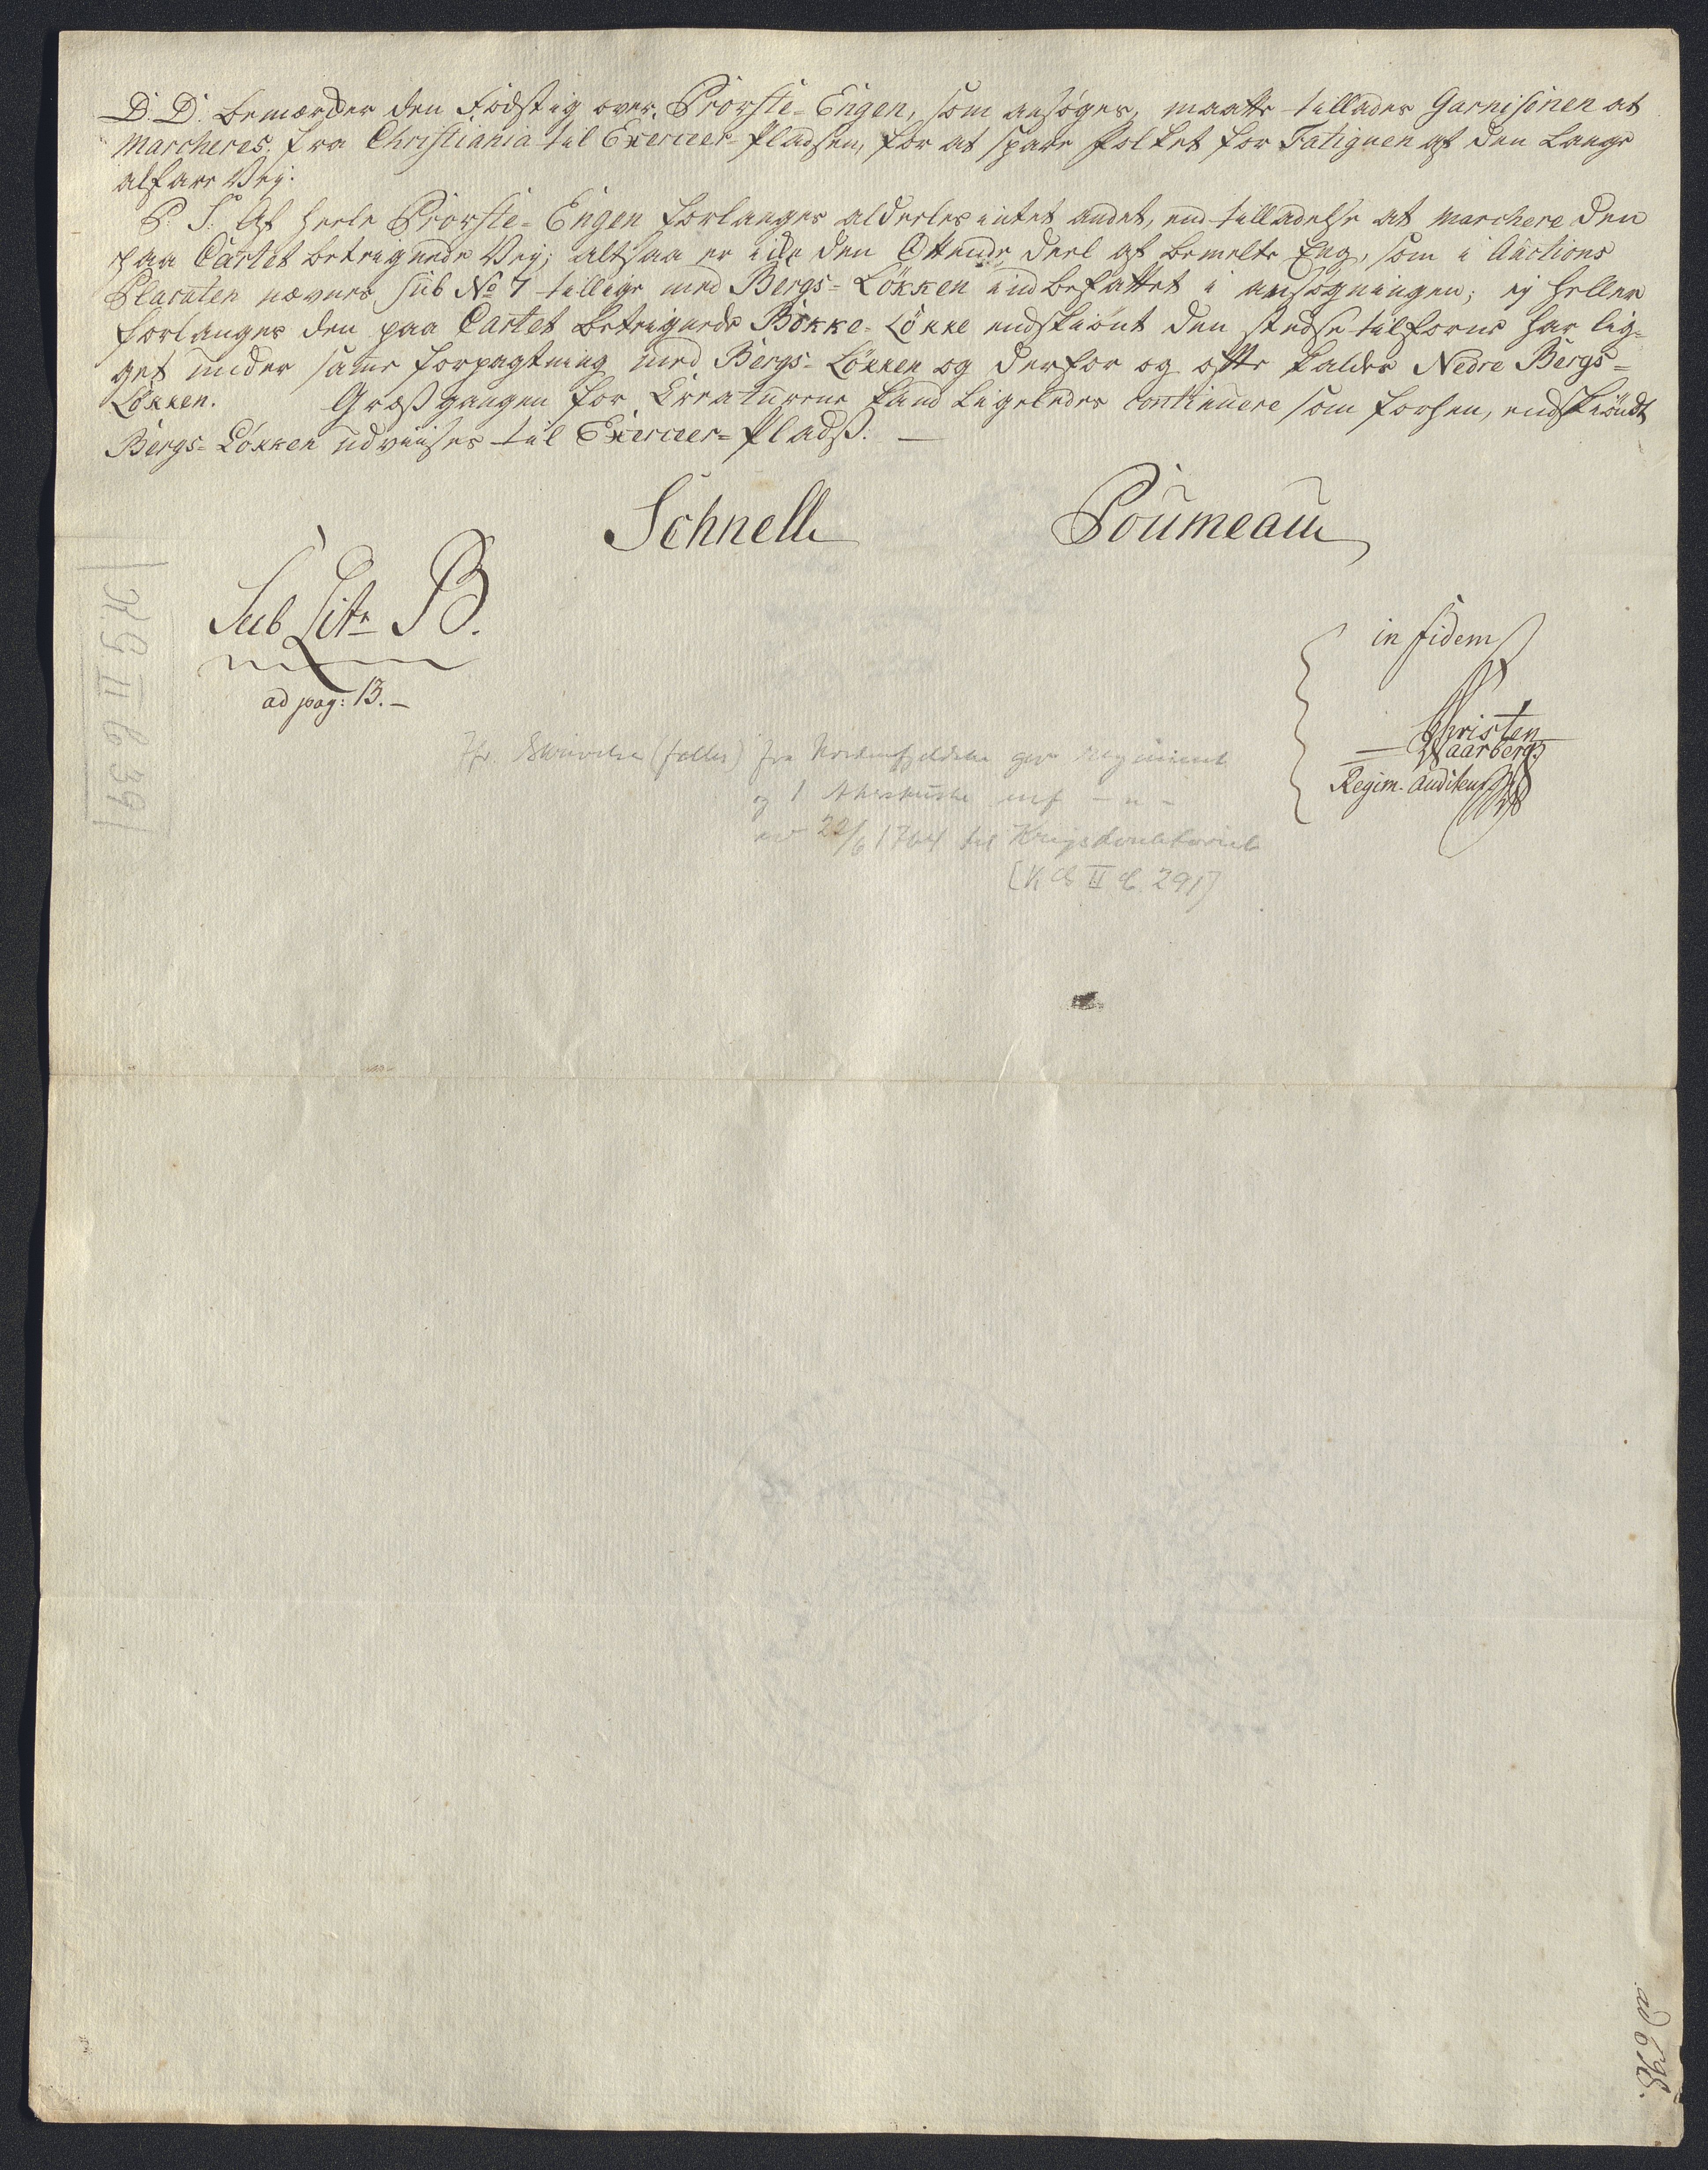 D. D. bemærcker den Fodstig over Prorstie-Engen, som ansøges, maatte tillades Garnisonen at
marcheres. fra Christiania til Exerceer-Pladsen, for at spare Folket for Fatiguen af den Lange
alfare Vej.
P. S. Af heele Prorstie-Engen forlanges alderles intet andet, end tilladelse at marchere den
paa Cartet betegnede Vej; altsaa er icke den Ottende deel af bemelte Eng, som i Auctions
Placaten nævnes sub No 7 tillige med Bergs-Løkken indbefattet i ansøgningen; ej heller
forlanges den paa Cartet betegnede Bökke-Lökke endskiönt den stedse tilforne har lig-
get under samme forpagtning med Bergs-Lökken og derfor og ofte kaldes Nedre Bergs-
Lökken. Græsgangen for Creaturene kand ligeledes continuere som forhen, endskiöndt
Bergs-Lökken udviises til Exerceer-Plads. —
Schnell Poumeau
Sub Litr B.
ad pag: 13. —
in fidem
Christen
Waarberg
Regim. Auditeur
Jfr. Skrivelse (felles) fra Nordenfjeldske gev. regiment
og 1 Akershuske inf — " —
av 22/6 1764 til Krigsdirektoriet
[KG II C. 291]
KG II C 391
ad 695.